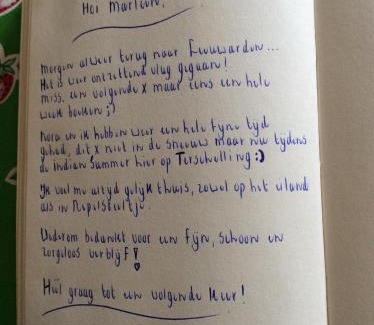 Hoi Marleen,
morgen alweer terug naar Leeuwarden...
Het is weer ontzettend vlug gegaan!
miss. een volgende x maar eens een hele
week boeken ;)
Nora en ik hebben weer een hele fyne tyd
gehad, dit x niet in de sneeuw maar nu tijdens
de indian summer hier op Terschelling :)
Ik voel me altyd gelyk thuis, zowel op het eiland
als in
Wederom bedankt voor een fijn, schoon en
zorgeloos verblijf!
Heel graag tot een volgende keer!